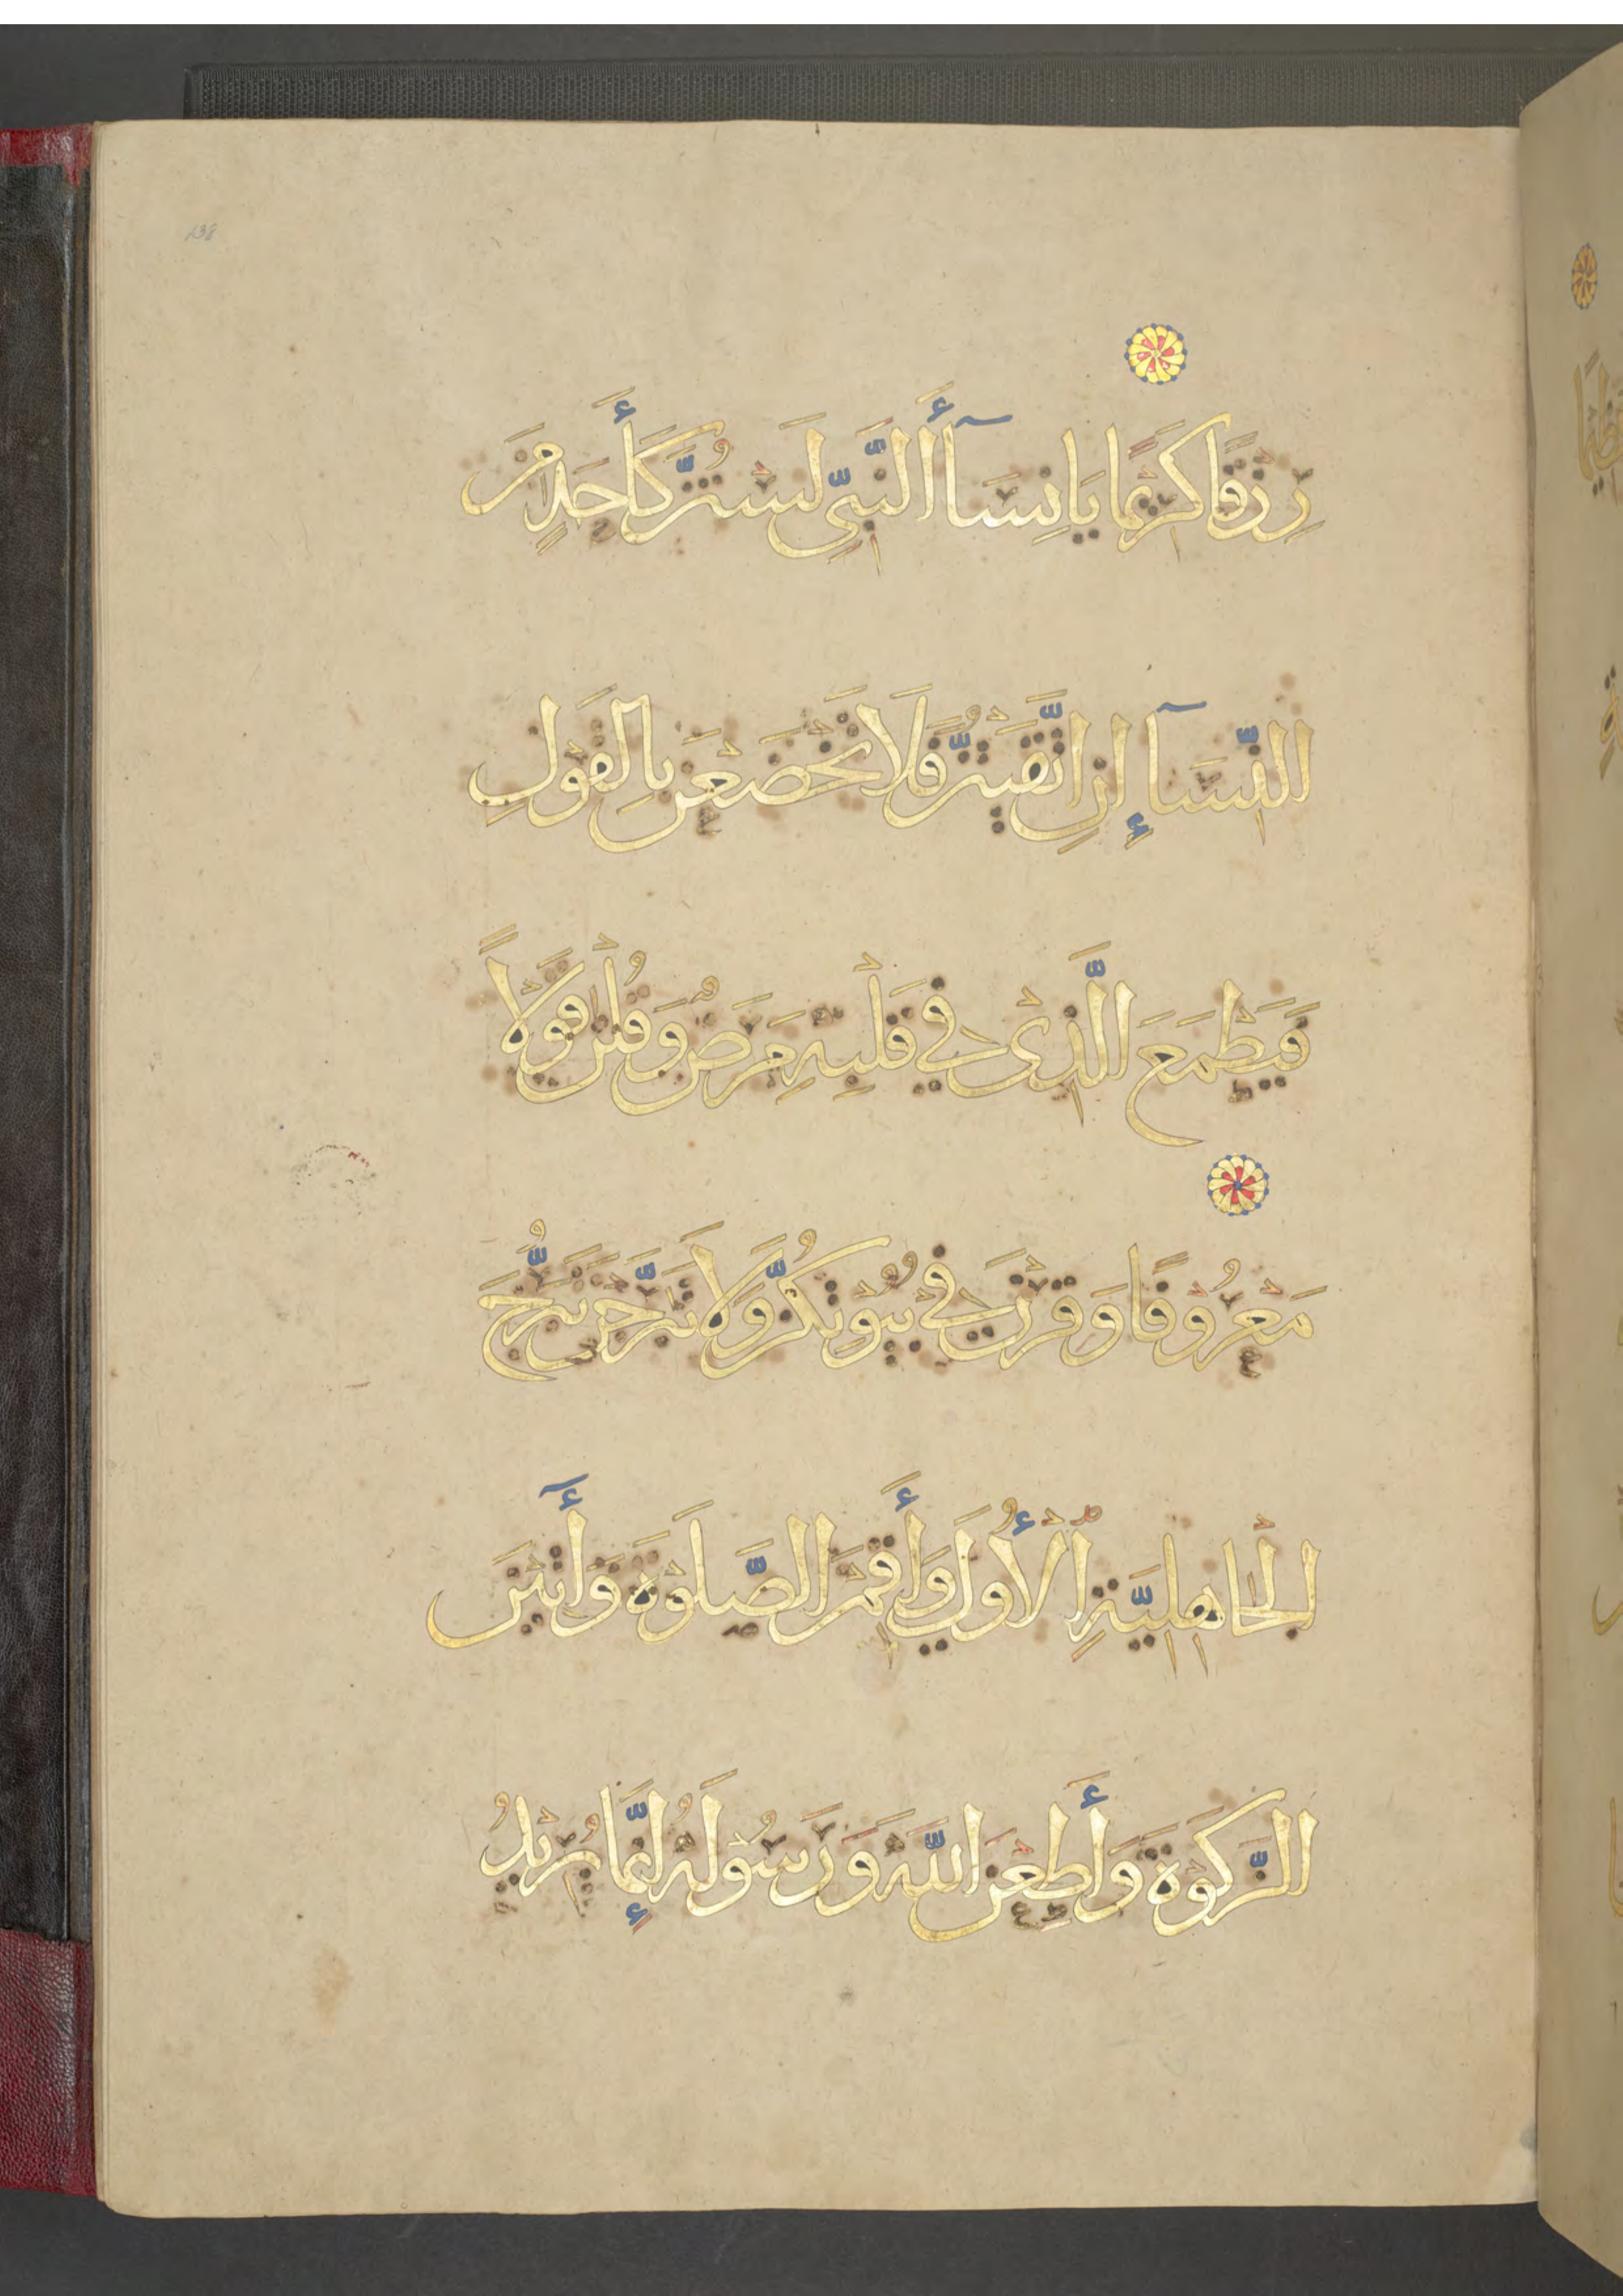 138
رِزْقًا كَرِيمًا يَا نِسَآأَ النَّبِيِّ لَسْتُنَّ كَأَحَدٍ مِنَ
النِّسَآإِ إِنِ اتَّقَيْتُنَّ فَلَا تَخْضَعْنَ بِالْقَوْلِ
فَيَطْمَعَ الَّذِى فِي قَلْبِهِ مَرَضٌ وَقُلْنَ قَوْلًا
مَعْرُوفًا وَقَرْنَ فِي بُيُوتِكُنَّ وَلَا تَبَرَّجْنَ تَبَرُّجَ
الْجَاهِلِيَّةِ الْأُولَى وَأَقِمْنَ الصَّلَوٰةَ وَأٓتِينَ
الزَّكَوٰةَ وَأَطِعْنَ اللَّهَ وَرَسُولَهُ إِنَّمَا يُرِيدُ